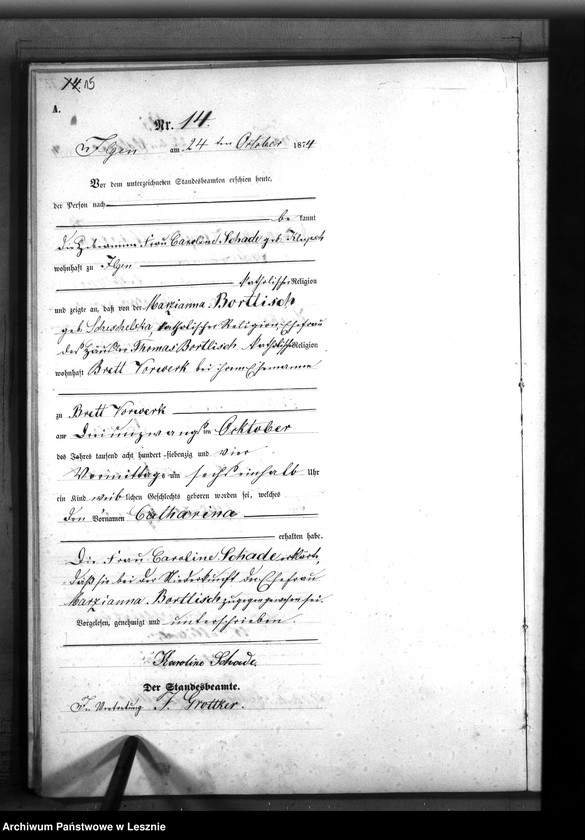 14. 15
A.
Nr. 14.
Ilgen am 24ten October 1874
Vor dem unterzeichneten Standesbeamten erschien heute,
der Person nach
be kannt
die Hebamme Frau Caroline Schade geb.
wohnhaft zu Ilgen
katholischer Religion
und zeigte an, daß von der Marzianna Bortlisch
geb. katholischer Religion, Ehefrau
des Häusler Thomas Bortlisch katholischer Religion
wohnhaft Brett Vorwerk bei ihrem Ehemanne
zu Brett Vorwerk
am Dreiundzwanzigsten Ocktober
des Jahres tausend acht hundert siebenzig und vier
Vormittags um sechseinhalb Uhr
ein Kind weiblichen Geschlechts geboren worden sei, welches
den Vornamen Catharina
erhalten habe.
Die Frau Caroline Schade erklärte,
daß sie bei der Niederkunft der Ehefrau
Marzianna Bortlisch zugegen gewesen sei.
Vorgelesen, genehmigt und unterschrieben.
Karoline Schade.
Der Standesbeamte.
In Vertretung F. Grottker.
Archiwum Państwowe w Lesznie